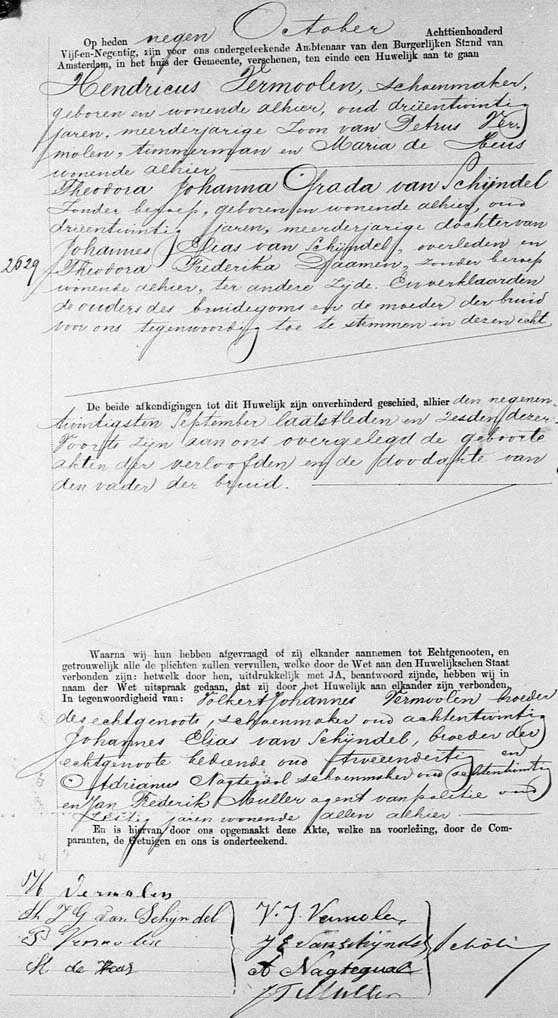 Op heden negen October Achttienhonderd
Vijf-en-Negentig, zijn voor ons ondergeteekende Ambtenaar van den Burgerlijken Stand van
Amsterdam, in het huis der Gemeente, verschenen, ten einde een Huwelijk aan te gaan
Hendricus Vermoolen, schoenmaker,
geboren en wonende alhier, oud drieentwintig
jaren, meerderjarige Zoon van Petrus Ver-
molen, timmerman en Maria de
wonende alhier
Theodora Johanna Grada van Schijndel
zonder beroep, geboren en wonende alhier, oud
drieentwintig jaren, meerderjarige dochter van
Johannes Elias van Schijndel, overleden en
2629 Theodora Frederika Daamen, zonder beroep
wonende alhier, ter andere zijde. En verklaarden
de ouders des bruidegoms en de moeder der bruid
voor ons tegenwoordig toe te stemmen in dezen echt
De beide afkondigingen tot dit Huwelijk zijn onverhinderd geschied, alhier den negenen-
twintigsten September laatstleden en zesden dezer
Voorts zijn aan ons overgelegd de geboorte
akten der verloofden en de doodakte van
den vader der bruid.
Waarna wij hun hebben afgevraagd of zij elkander aannemen tot Echtgenooten, en
getrouwelijk alle de plichten zullen vervullen, welke door de Wet aan den Huwelijkschen Staat
verbonden zijn: hetwelk door hen, uitdrukkelijk met JA, beantwoord zijnde, hebben wij in
naam der Wet uitspraak gedaan, dat zij door het Huwelijk aan elkander zijn verbonden.
In tegenwoordigheid van: Volkert Johannes Vermoolen broeder
des echtgenoots, schoenmaker oud achtentwintig
Johannes Elias van Schijndel, broeder der
echtgenoote bediende oud tweeendertig en
Adrianus Nagtegaal schoenmaker oud achtentwintig
en Jan Frederik Muller agent van politie oud
zestig jaren wonende allen alhier
En is hiervan door ons opgemaakt deze Akte, welke na voorlezing, door de Com-
paranten, de Getuigen en ons is onderteekend.
H Vermolen
Th J G van Schijndel
P Vermolen
M de
V. J. Vermolen
J E van Schijndel
A Nagtegaal
J F Muller